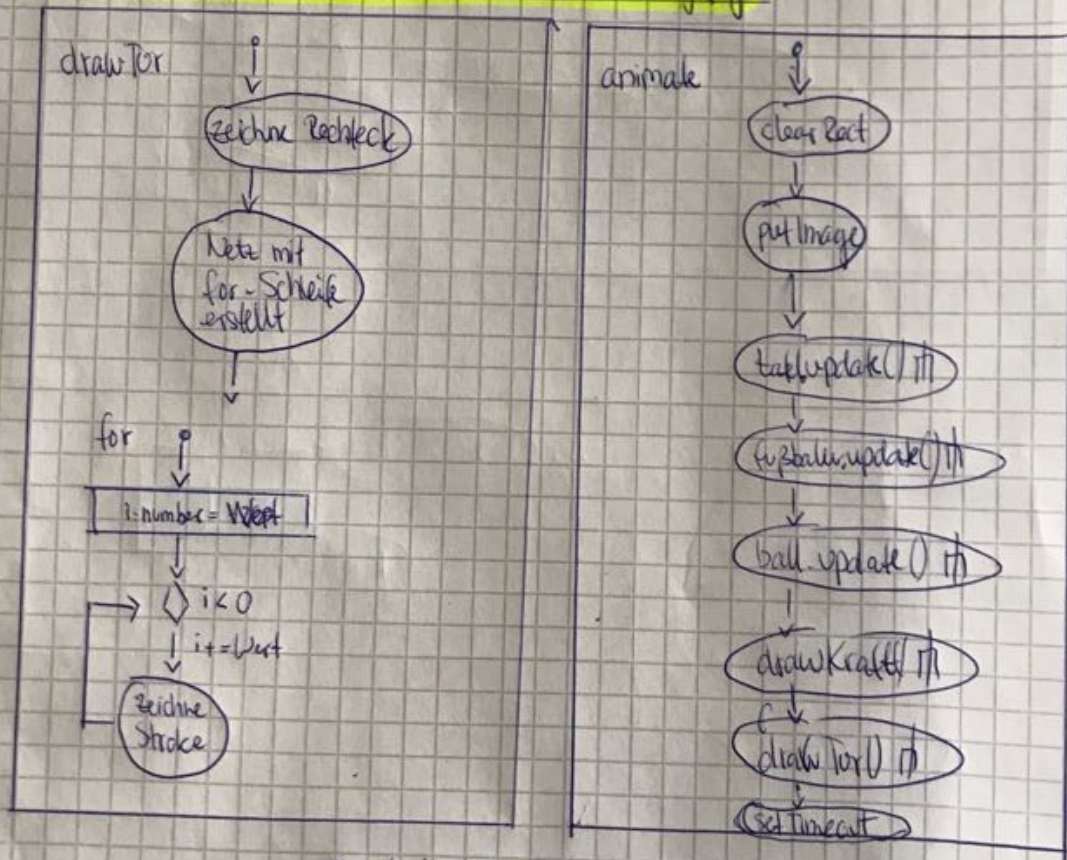 drawTor
zeichne Rechteck
Netz mit
for-Schleife
erstellt
for
i: number = Wert
i<0
i+=Wert
zeichne
Stroke
animate
clearRect
putImage
update()
fußballer.update()
ball.update()
drawKraft()
drawTor()
setTimeout